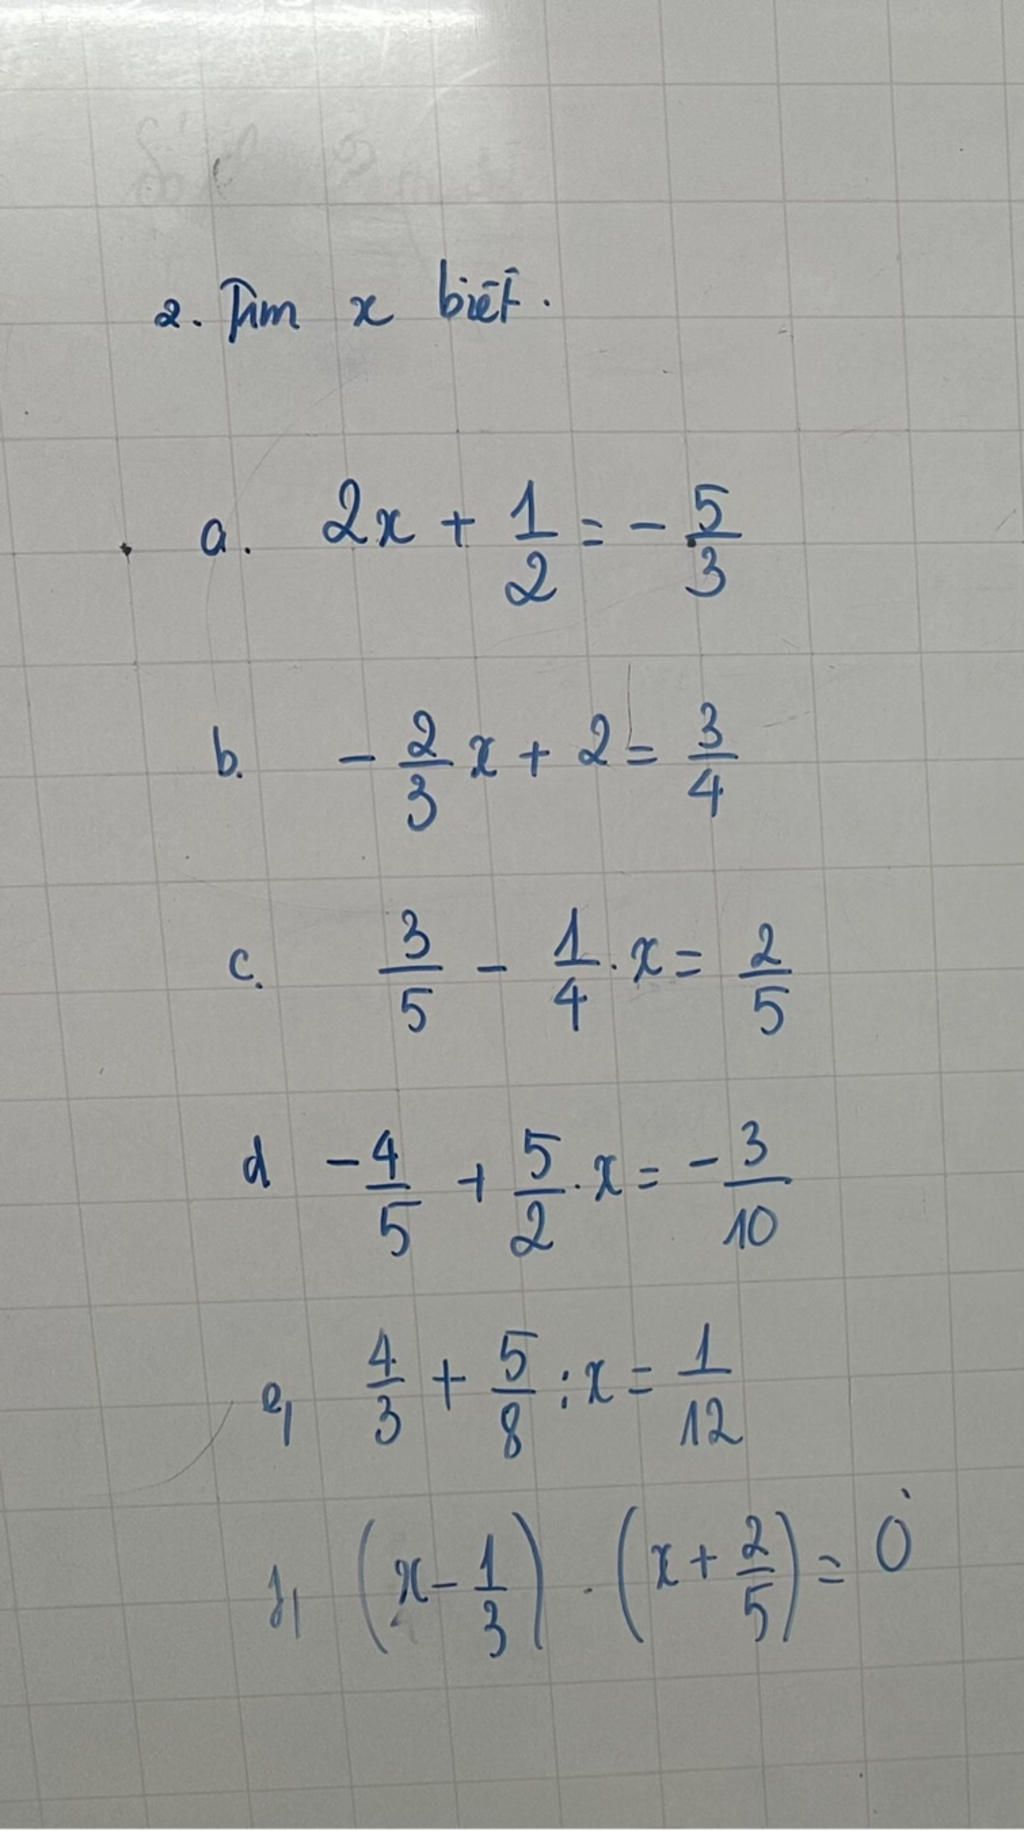 2. Tìm x biết.
a. 2x + 1/2 = - 5/3
b. - 2/3 x + 2 = 3/4
c. 3/5 - 1/4 . x = 2/5
d - 4/5 + 5/2 . x = - 3/10
e, 4/3 + 5/8 : x = 1/12
f, (x - 1/3) . (x + 2/5) = 0